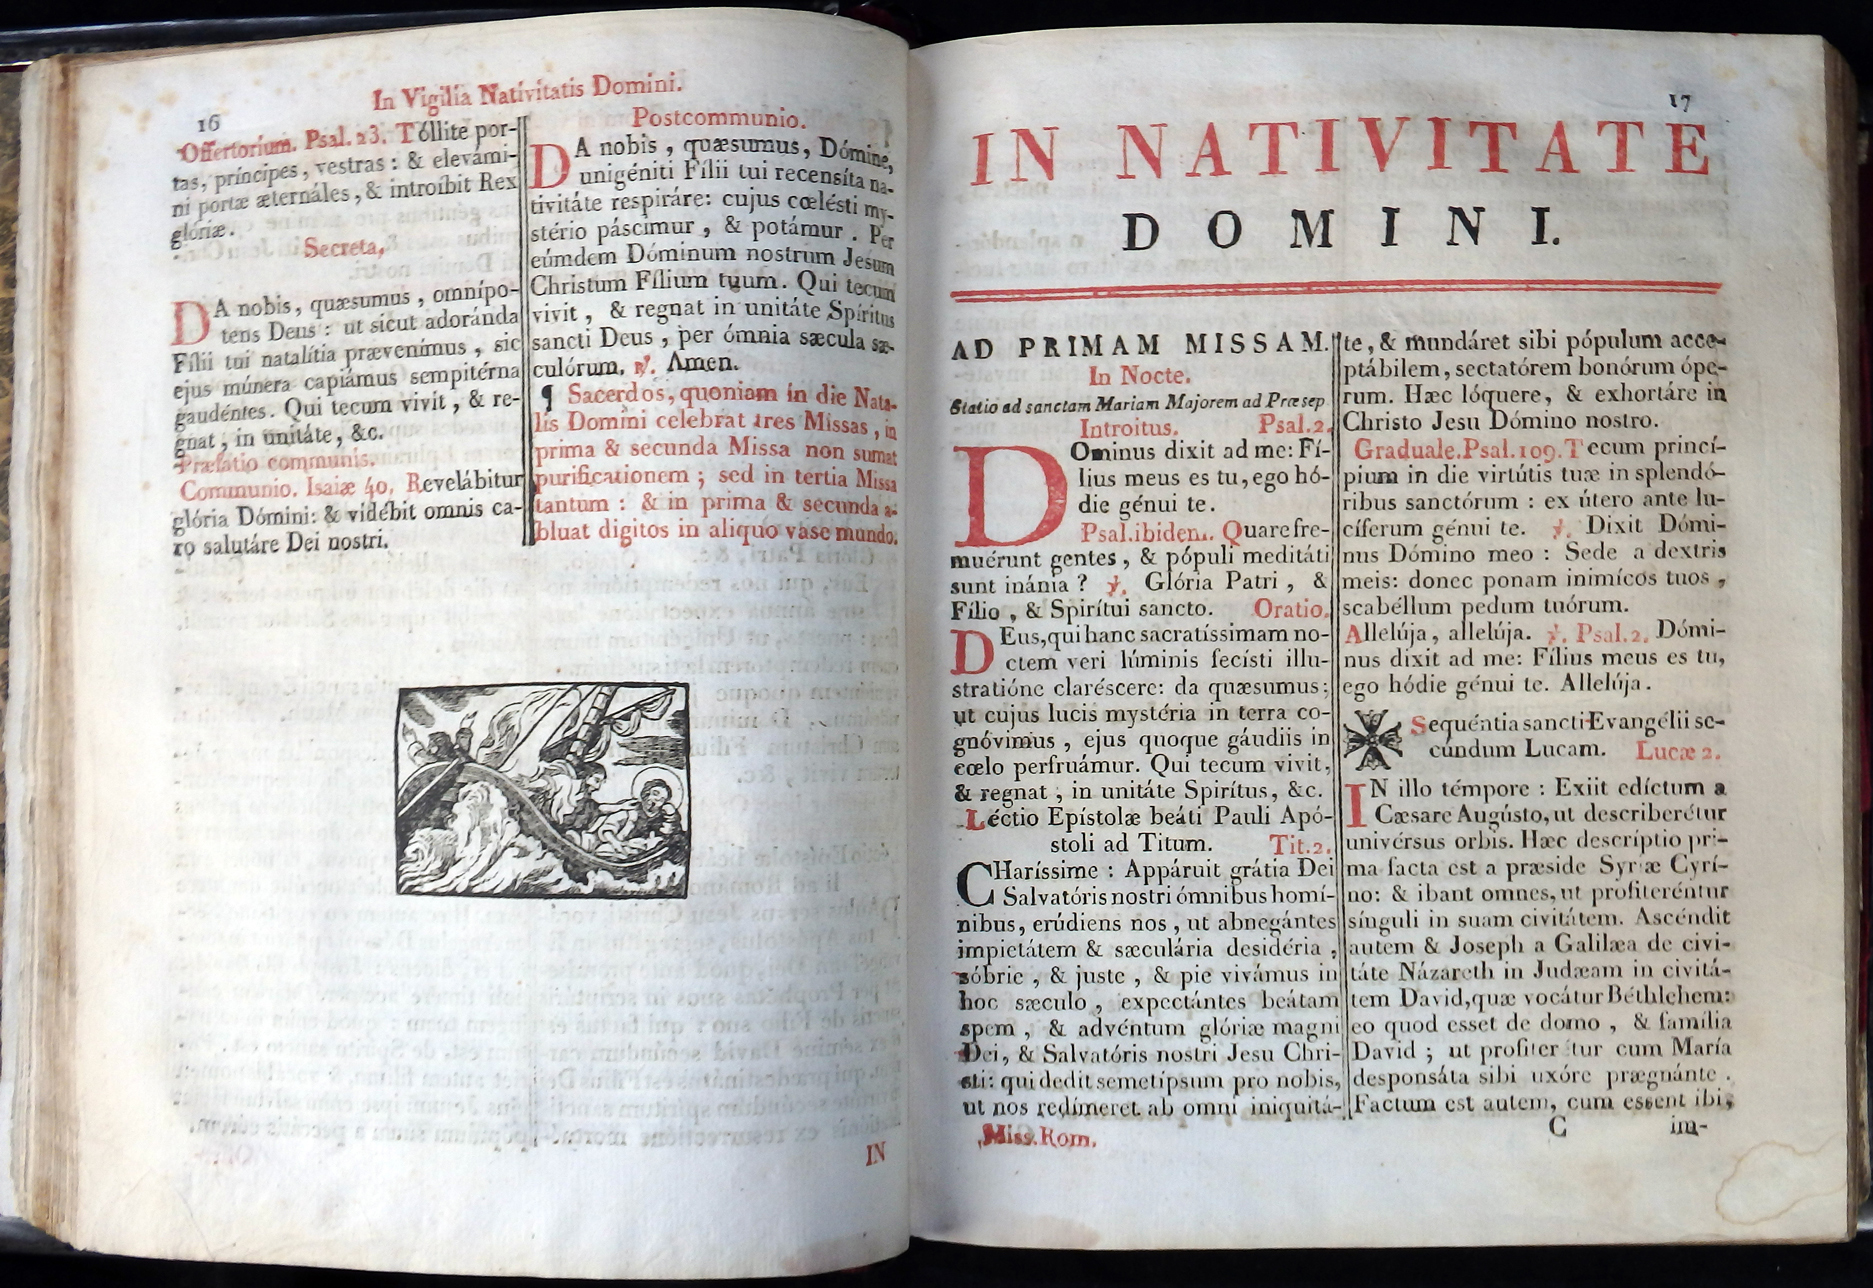 16
In Vigilia Nativitatis Domini.
Offertorium. Psal. 23. Tóllite por-
tas, príncipes, vestras : & elevámi-
ni portæ æternáles, & introíbit Rex
glóriæ.
Secreta,
DA nobis, quæsumus , omnípo-
tens Deus : ut sicut adoránda
Fílii tui natalítia prævenímus , sic
ejus múnera capiámus sempitérna
gaudéntes. Qui tecum vivit, & re-
gnat, in unitáte, &c.
Præfatio communis.
Communio. Isaiæ 40. Revelábitur
glória Dómini: & vidébit omnis ca-
ro salutáre Dei nostri.
Postcommunio.
DA nobis , quæsumus, Dómine,
unigéniti Fílii tui recensíta na-
tivitáte respiráre: cujus cœlésti my-
stério páscimur , & potámur . Per
eúmdem Dóminum nostrum Jesum
Christum Fílium tuum. Qui tecum
vivit , & regnat in unitáte Spíritus
sancti Deus , per ómnia sæcula sæ-
culórum. ℟. Amen.
¶ Sacerdos, quoniam in die Nata-
lis Domini celebrat tres Missas , in
prima & secunda Missa non sumat
purificationem ; sed in tertia Missa
tantum : & in prima & secunda a-
bluat digitos in aliquo vase mundo.
IN
17
IN NATIVITATE
DOMINI.
AD PRIMAM MISSAM.
In Nocte.
Statio ad sanctam Mariam Majorem ad Præsep
Introitus. Psal.2.
DOminus dixit ad me: Fí-
lius meus es tu, ego hó-
die génui te.
Psal.ibidem. Quare fre-
muérunt gentes , & pópuli meditáti
sunt inánia ? ℣. Glória Patri , &
Fílio , & Spirítui sancto. Oratio.
DEus, qui hanc sacratíssimam no-
ctem veri lúminis fecísti illu-
stratióne claréscere: da quæsumus;
ut cujus lucis mystéria in terra co-
gnóvimus , ejus quoque gáudiis in
cœlo perfruámur. Qui tecum vivit,
& regnat , in unitáte Spíritus, &c.
Léctio Epístolæ beáti Pauli Apó-
stoli ad Titum. Tit.2.
CHaríssime : Appáruit grátia Dei
Salvatóris nostri ómnibus homí-
nibus, erúdiens nos , ut abnegántes
impietátem & sæculária desidéria ,
sóbrie , & juste , & pie vivámus in
hoc sæculo , expectántes beátam
spem , & advéntum glóriæ magni
Dei, & Salvatóris nostri Jesu Chri-
sti: qui dedit semetípsum pro nobis,
ut nos redímeret ab omni iniquitá-
Miss. Rom.
te, & mundáret sibi pópulum acce-
ptábilem, sectatórem bonórum ópe-
rum. Hæc lóquere, & exhortáre in
Christo Jesu Dómino nostro.
Graduale. Psal.109. Tecum princí-
pium in die virtútis tuæ in splendó-
ribus sanctórum : ex útero ante lu-
cíferum génui te. ℣. Dixit Dómi-
nus Dómino meo : Sede a dextris
meis: donec ponam inimícos tuos ,
scabéllum pedum tuórum.
Allelúja, allelúja. ℣. Psal.2. Dómi-
nus dixit ad me: Fílius meus es tu,
ego hódie génui te. Allelúja.
✠ Sequéntia sancti Evangélii se-
cúndum Lucam. Lucæ 2.
IN illo témpore : Exiit edíctum a
Cæsare Augústo, ut describerétur
univérsus orbis. Hæc descríptio pri-
ma facta est a præside Syriæ Cyrí-
no: & ibant omnes, ut profiteréntur
sínguli in suam civitátem. Ascéndit
autem & Joseph a Galilæa de civi-
táte Názareth in Judæam in civitá-
tem David, quæ vocátur Béthlehem:
eo quod esset de domo , & família
David ; ut profiter tur cum María
desponsáta sibi uxóre prægnánte .
Factum est autem, cum essent ibi,
C im-